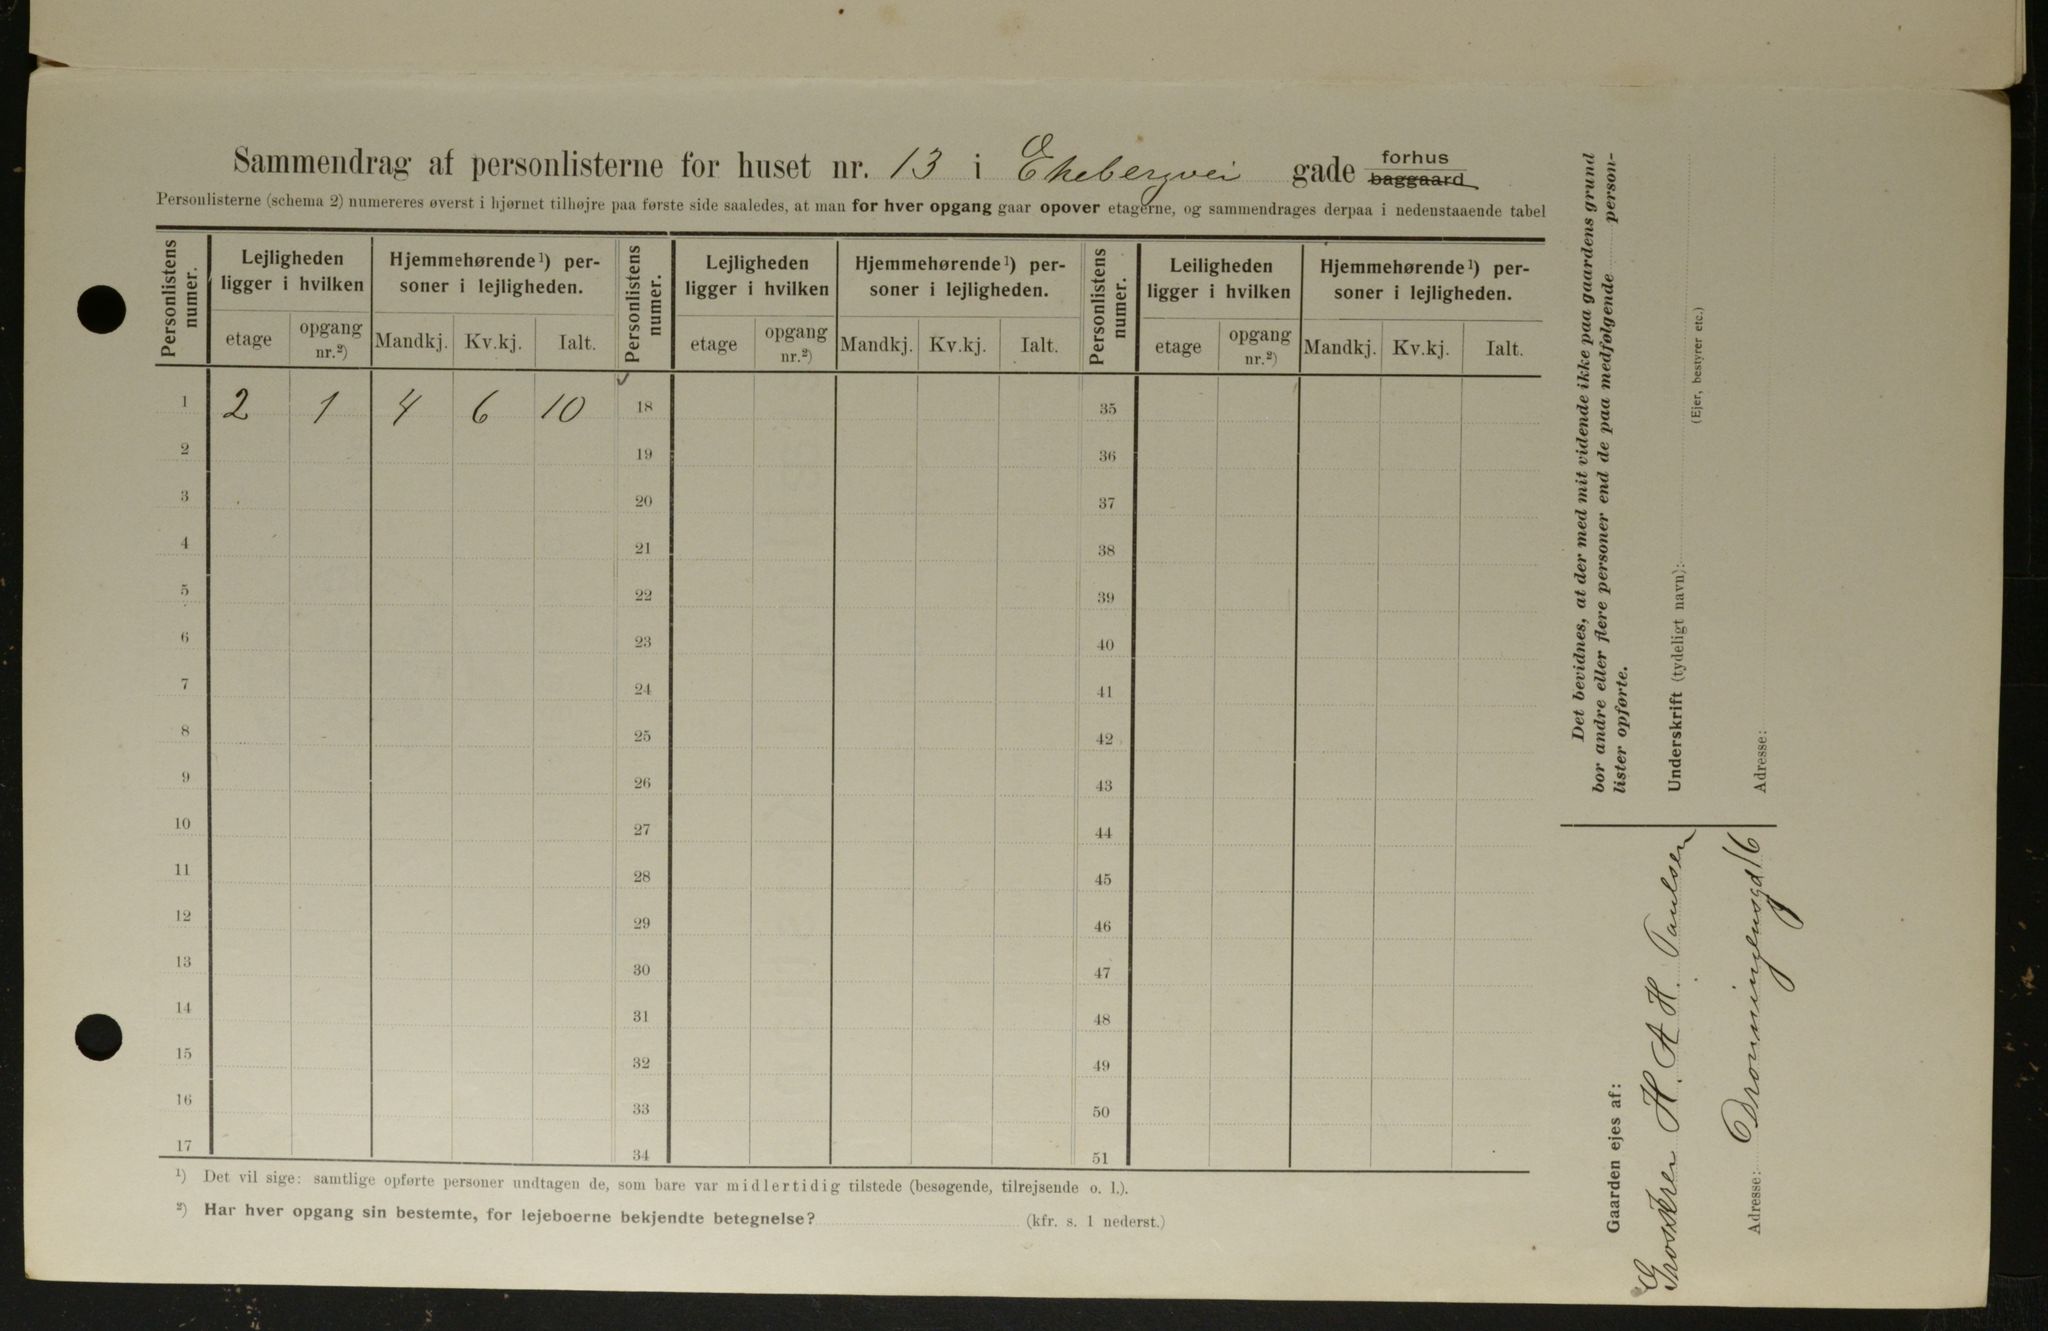 Sammendrag af personlisterne for huset nr. 13 i Ekebergvei gade forhus baggaard
Personlisterne (schema 2) numereres øverst i hjørnet tilhøjre paa første side saaledes, at man for hver opgang gaar opover etagerne, og sammendrages derpaa i nedenstaaende tabel
Personlistens numer.
Lejligheden ligger i hvilken
Hjemmehørende¹) personer i lejligheden.
Personlistens numer.
Lejligheden ligger i hvilken
Hjemmehørende¹) personer i lejligheden.
Personlistens numer.
Leiligheden ligger i hvilken
Hjemmehørende¹) personer i lejligheden.
etage opgang nr.²) Mandkj. Kv.kj. Ialt. etage opgang nr.²) Mandkj. Kv.kj. Ialt. etage opgang nr.²) Mandkj. Kv.kj. Ialt.
1 2 1 4 6 10 18 35
2 19 36
3 20 37
4 21 38
5 22 39
6 23 40
7 24 41
8 25 42
9 26 43
10 27 44
11 28 45
12 29 46
13 30 47
14 31 48
15 32 49
16 33 50
17 34 51
¹) Det vil sige: samtlige opførte personer undtagen de, som bare var midlertidig tilstede (besøgende, tilrejsende o. l.).
²) Har hver opgang sin bestemte, for lejeboerne bekjendte betegnelse? (kfr. s. 1 nederst.)
Det bevidnes, at der med mit vidende ikke paa gaardens grund
bor andre eller flere personer end de paa medfølgende person-
lister opførte.
Underskrift (tydeligt navn):
(Ejer, bestyrer etc.)
Adresse:
Gaarden ejes af:
H. A. H. Paulsen
Adresse: Dronningensgd 16